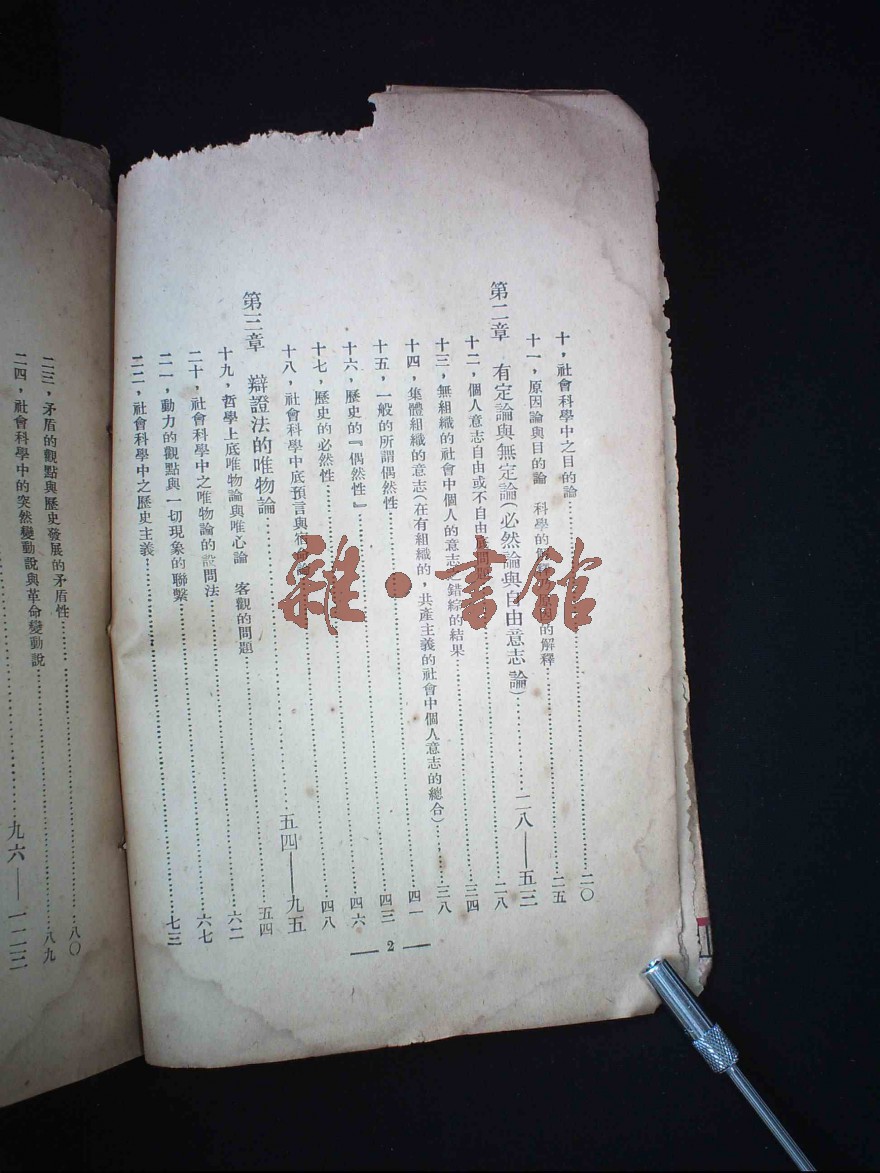 十，社會科學中之目的論……二〇
十一，原因論與目的論　科學的解釋　的解釋……二五
第二章　有定論與無定論（必然論與自由意志論）……二八——五三
十二，個人意志自由或不自由底問題……二八
十三，無組織的社會中個人的意志之錯綜的結果……三四
十四，集體組織的意志（在有組織的，共產主義的社會中個人意志的總合）……三八
十五，一般的所謂偶然性……四一
十六，歷史的『偶然性』……四三
十七，歷史的必然性……四六
十八，社會科學中底預言與宿命論……四八
第三章　辯證法的唯物論……五四——九五
十九，哲學上底唯物論與唯心論　客觀的問題……五四
二十，社會科學中之唯物論的設問法……六二
二一，動力的觀點與一切現象的聯繫……六七
二二，社會科學中之歷史主義……七三
— 2 —
二三，矛盾的觀點與歷史發展的矛盾性……八〇
二四，社會科學中的突然變動說與革命變動說……八九
……九六——一二三
雜·書館